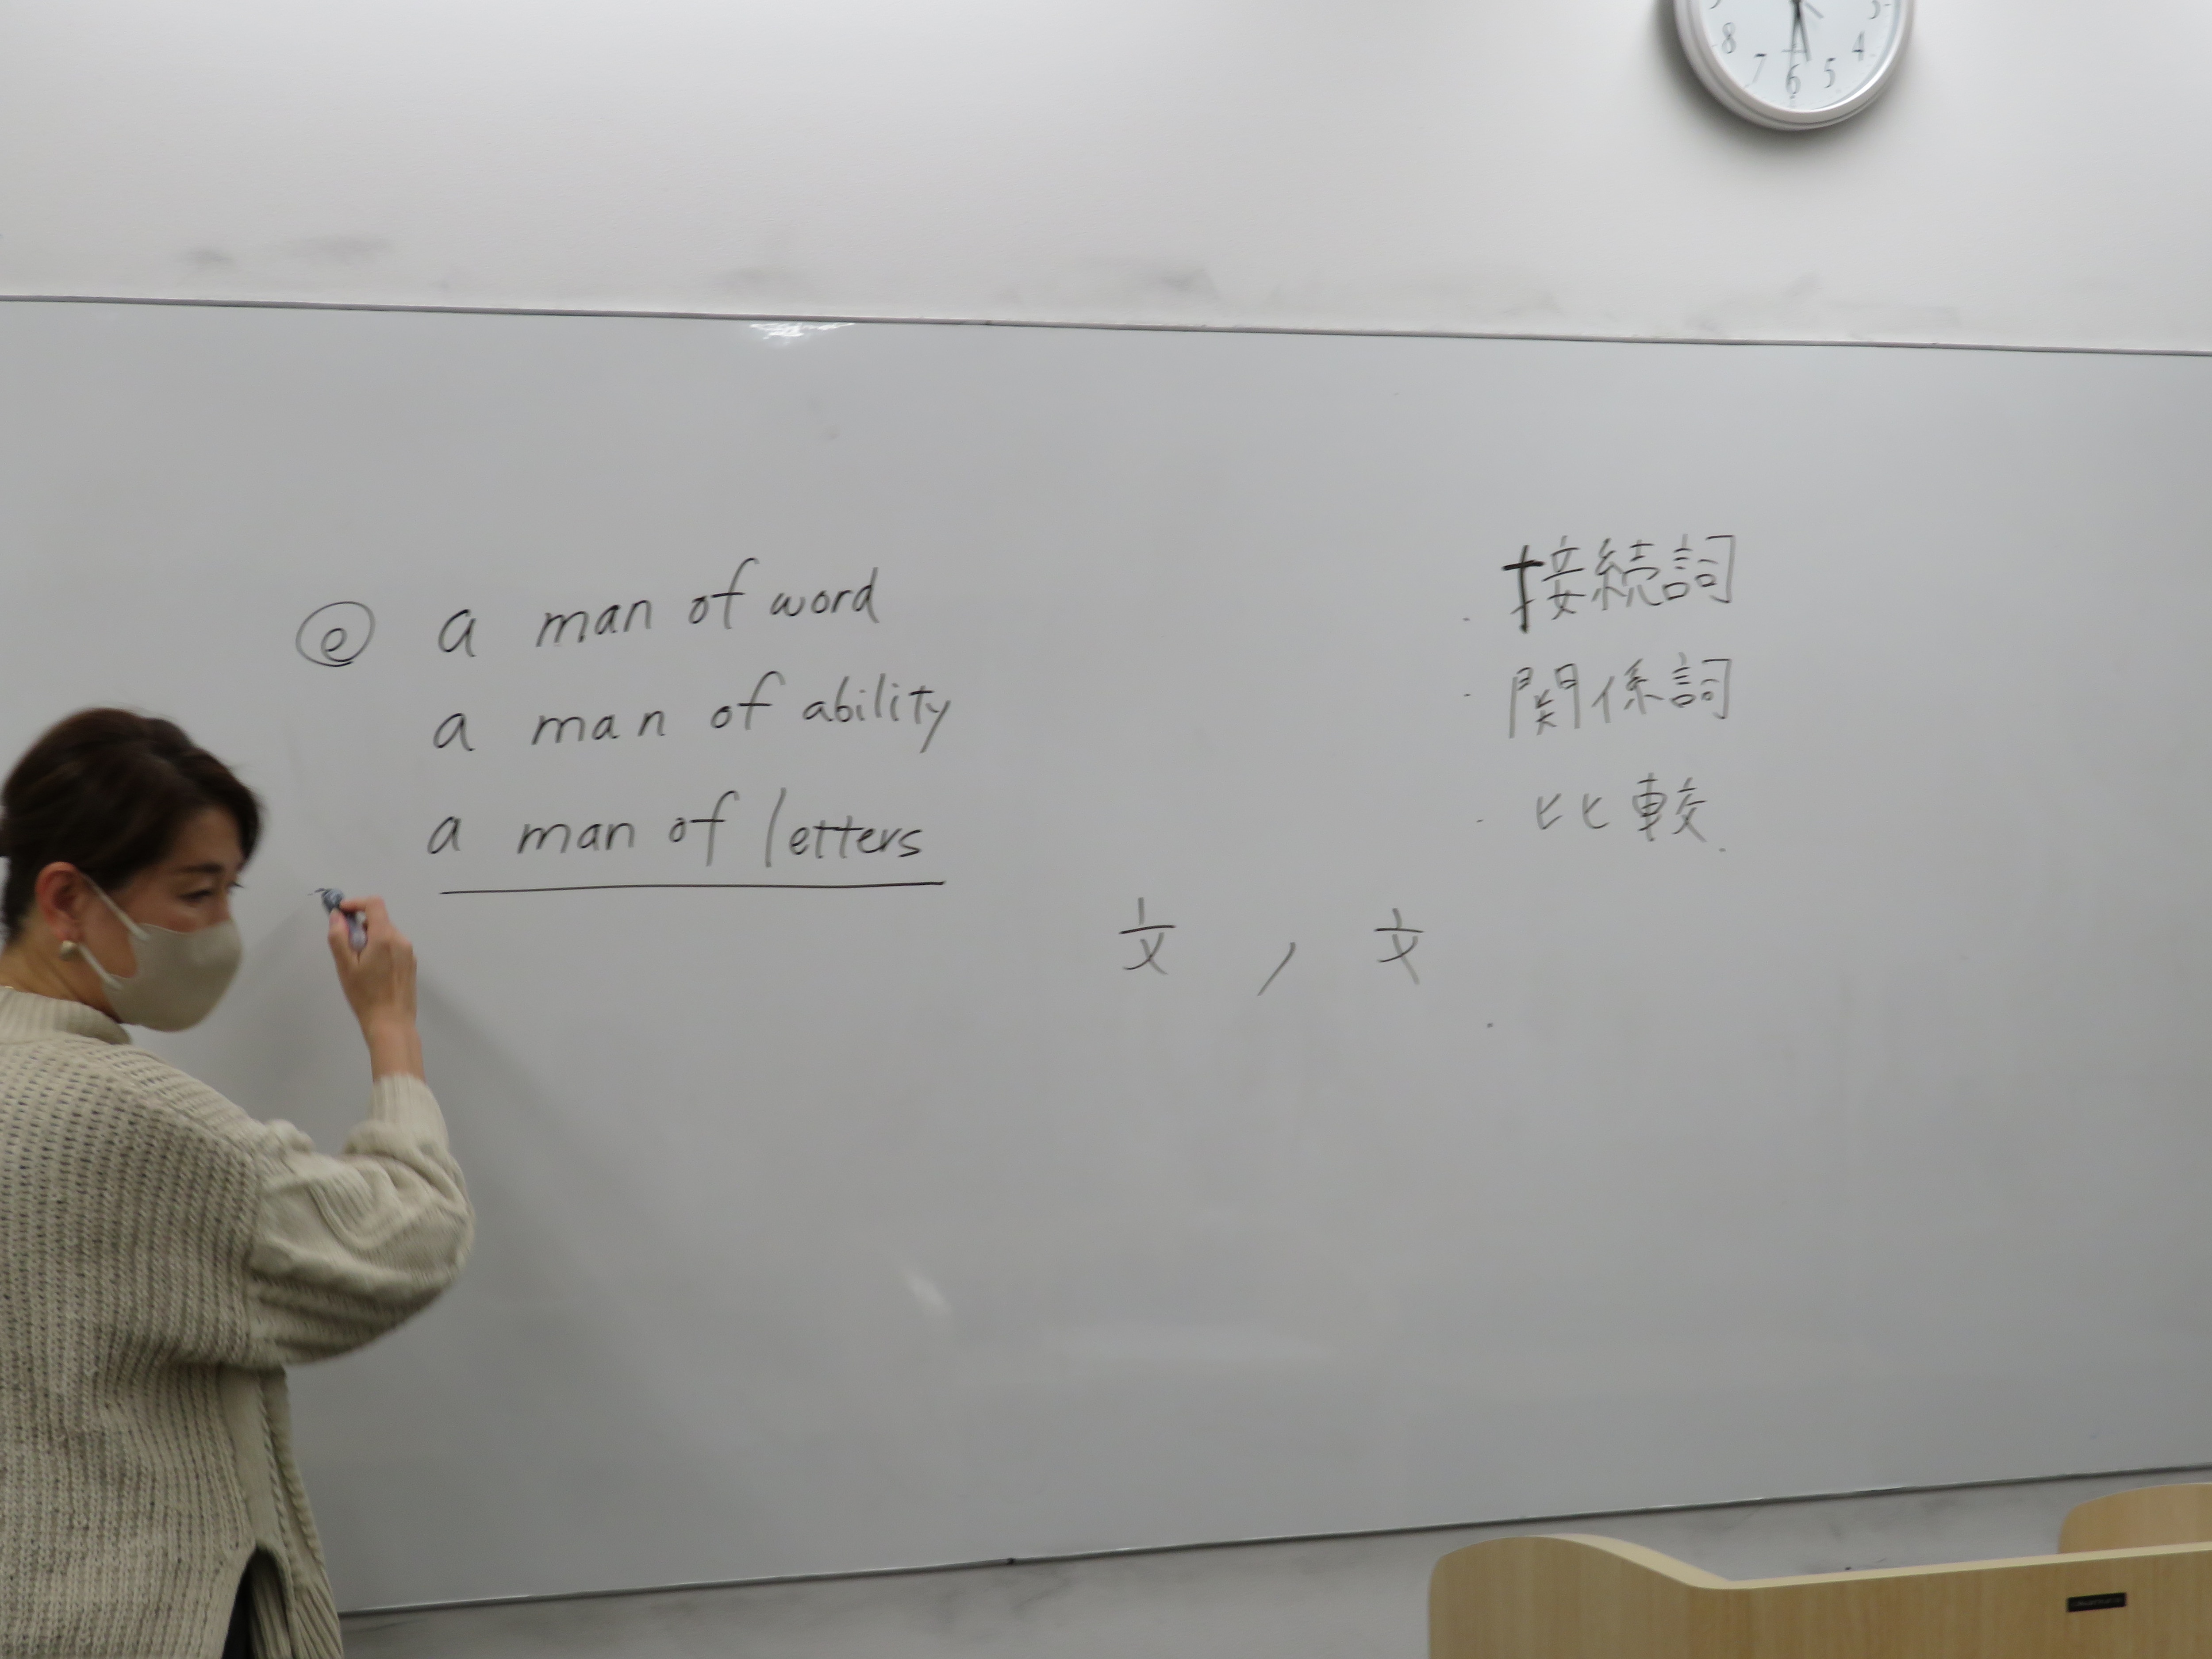 8 7 6 5 4 3
ⓔ a man of word
a man of ability
a man of letters
・接続詞
・関係詞
・比較.
文 , 文 .